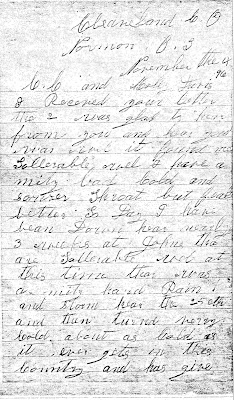 Cleaveland C. O
Vernon O. T
November the 4
96
C. C. and
I Received your letter
the 2 was glad to hear
from you and hear you
was well it found me
Tollerable well I have a
mity bad Cold and
Throat but feel
better So Far I have
bean Down hear nearly
3 weeks at Johns tha
are Tollerable well at
this time thar was
a mity hard Rain
and storm hear the 25 oct
and then turnd very
Cold about as Cold as
it ever gets in this
Country and has give